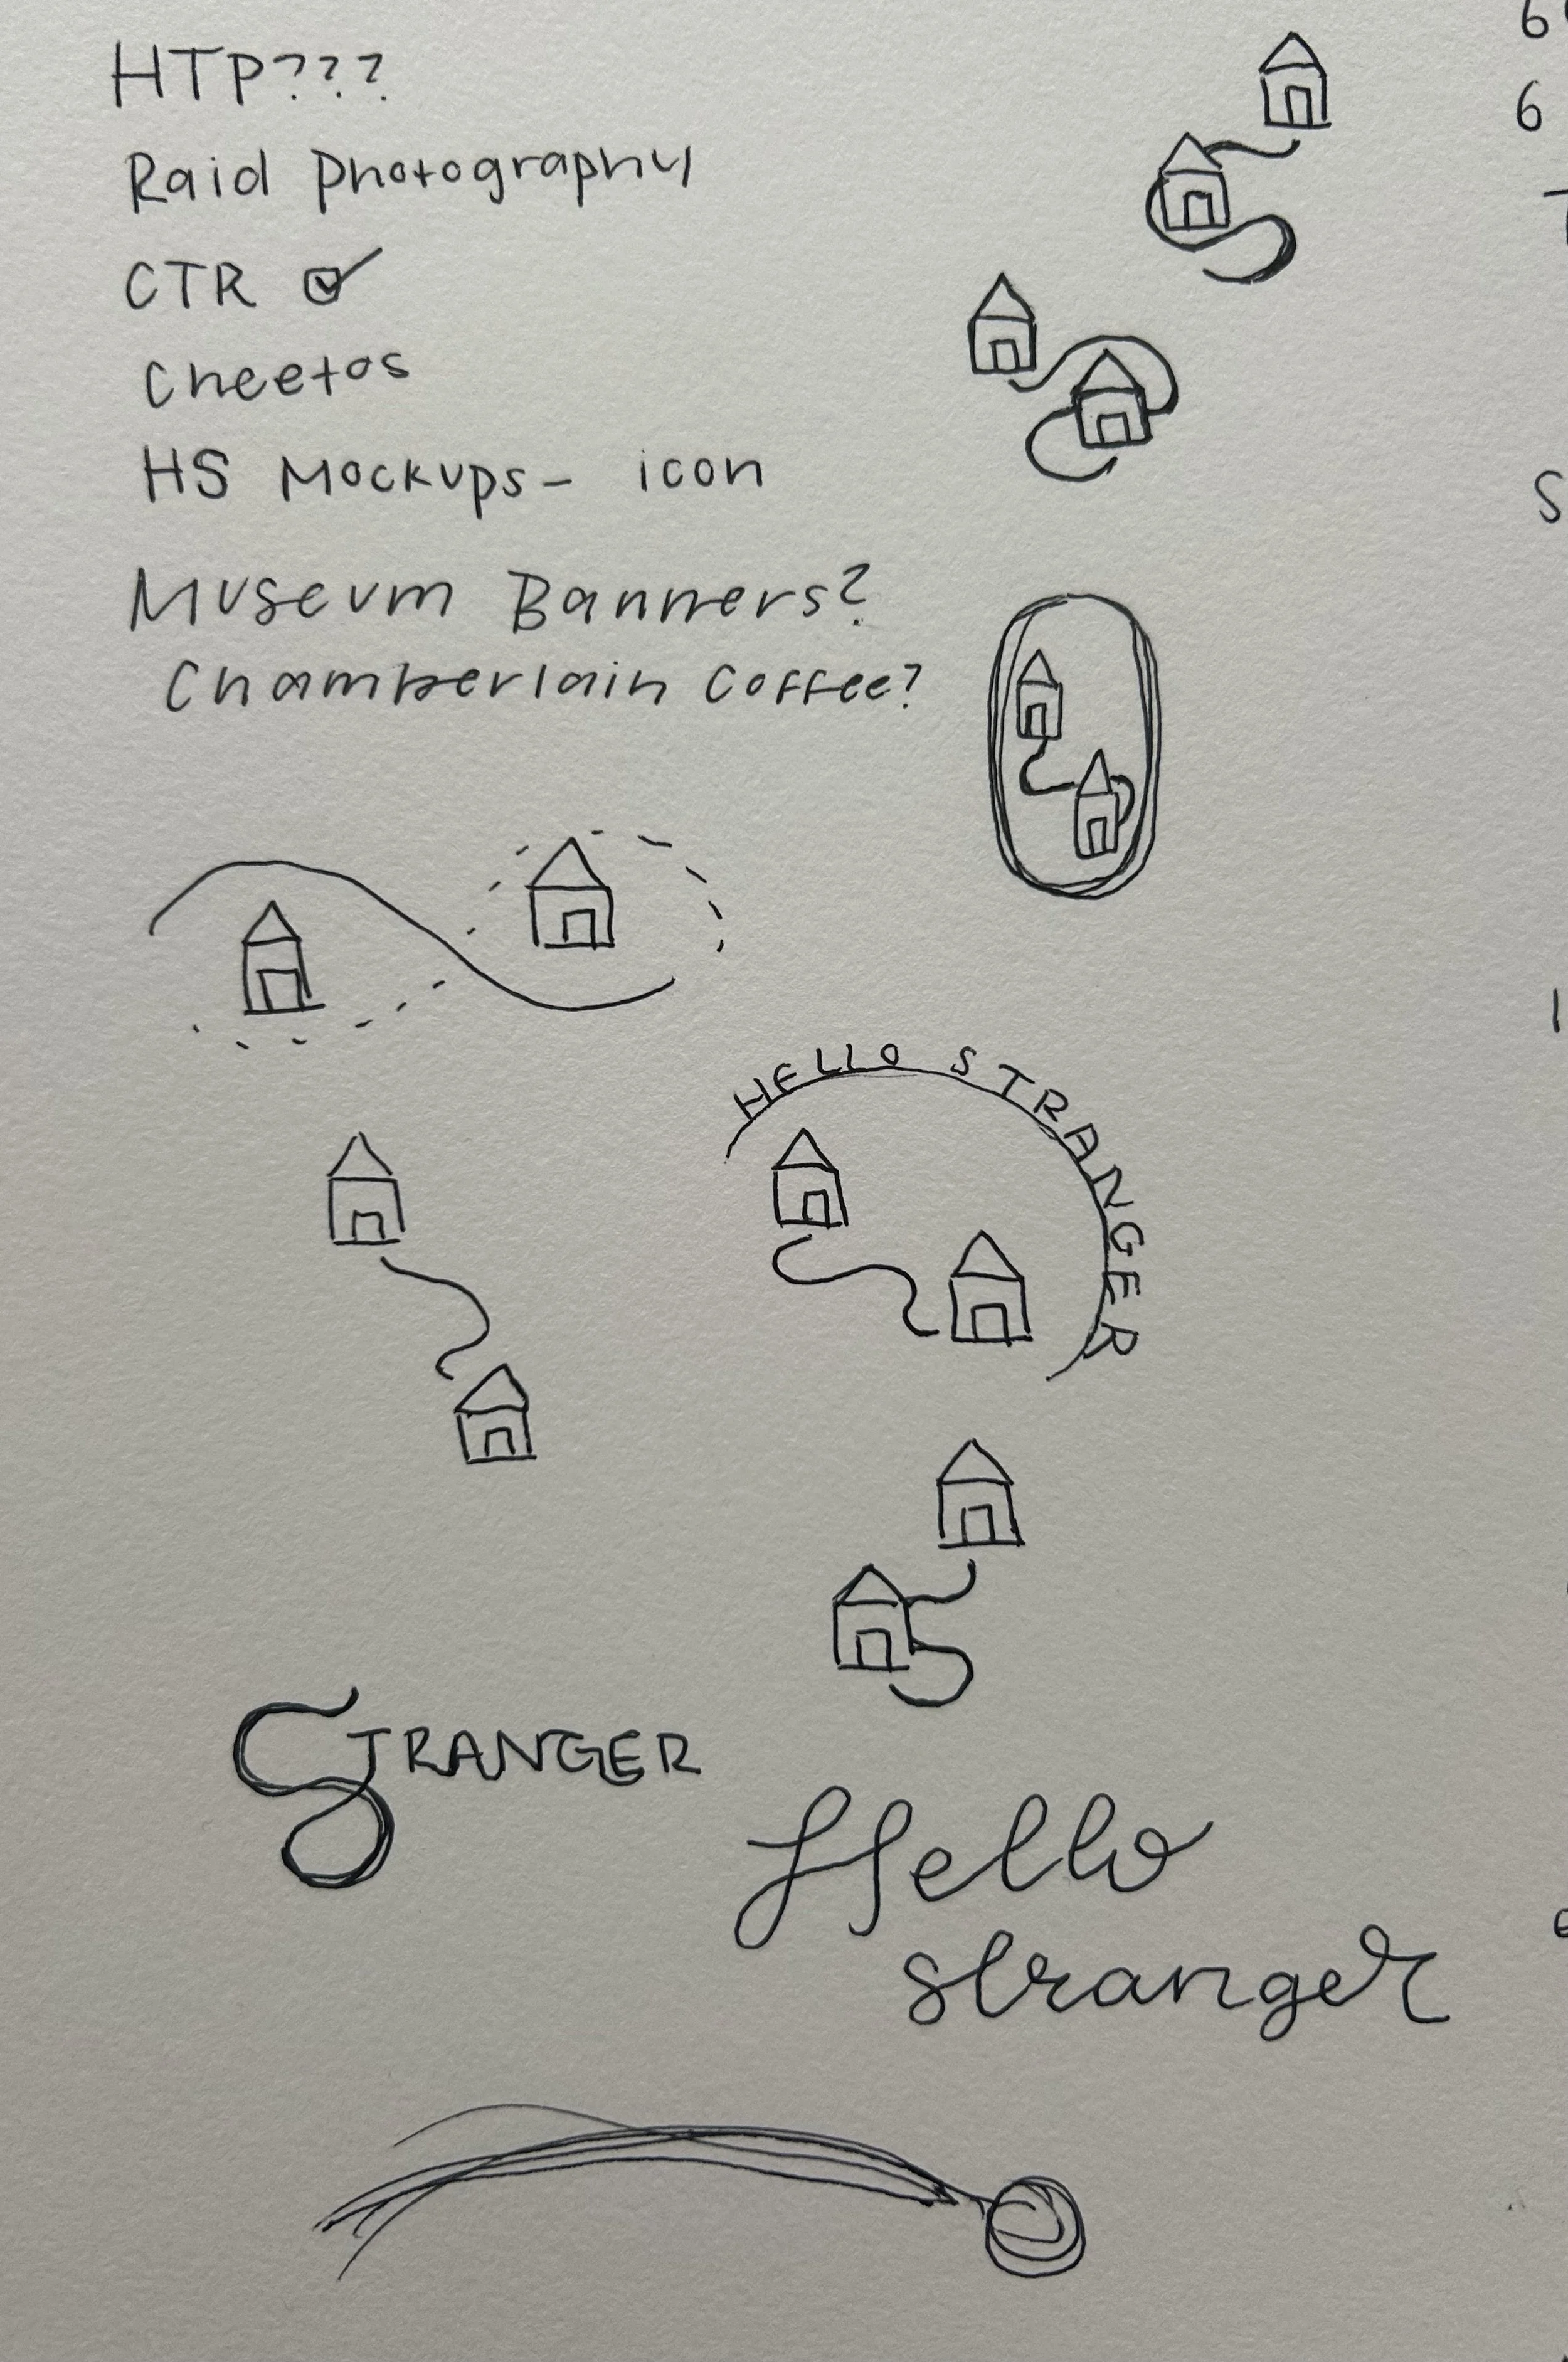 HTP???
Raid Photography
CTR ☑
Cheetos
HS Mockups - icon
Museum Banners?
Chamberlain Coffee?
HELLO STRANGER
STRANGER
Hello
stranger
6
6
S
1